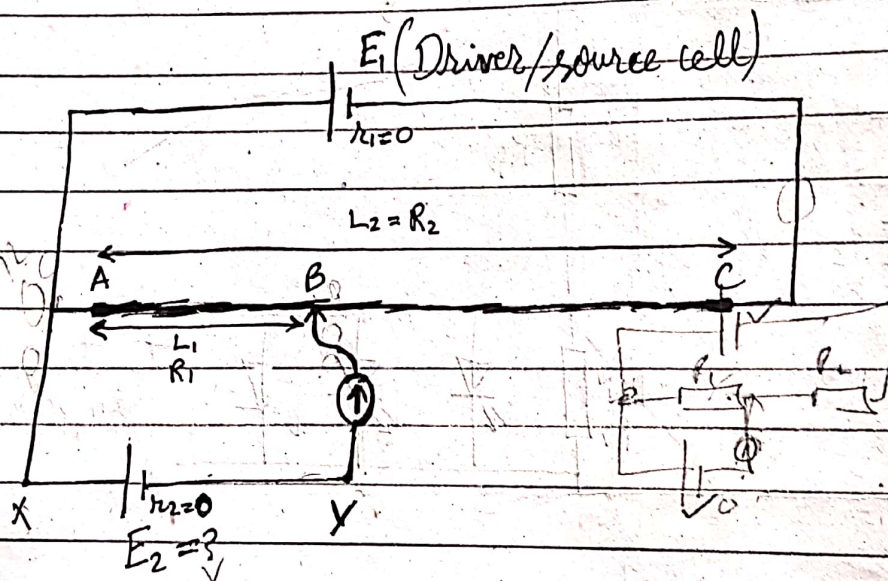 E₁ (Driver/source cell)
r₁=0
L₂ = R₂
A B C
L₁
R₁
X r₂=0 Y
E₂ = ?
V